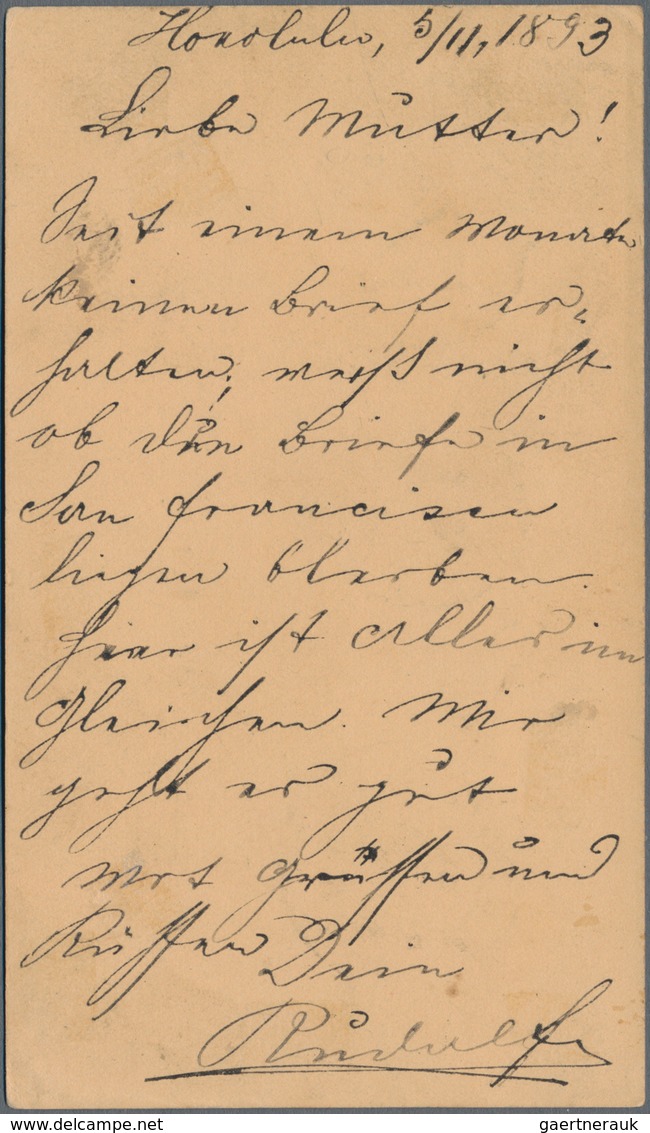 Honolulu, 5/11, 1893
Liebe Mutter!
Seit einem Monate
keinen Brief er=
halten; weiß nicht
ob die Briefe in
San Francisco
liegen bleiben.
Hier ist Alles im
Gleichen. Mir
geht es gut
Mit Grüssen und
Küssen Dein
Rudolf
©gaertnerauk
delcampe.net